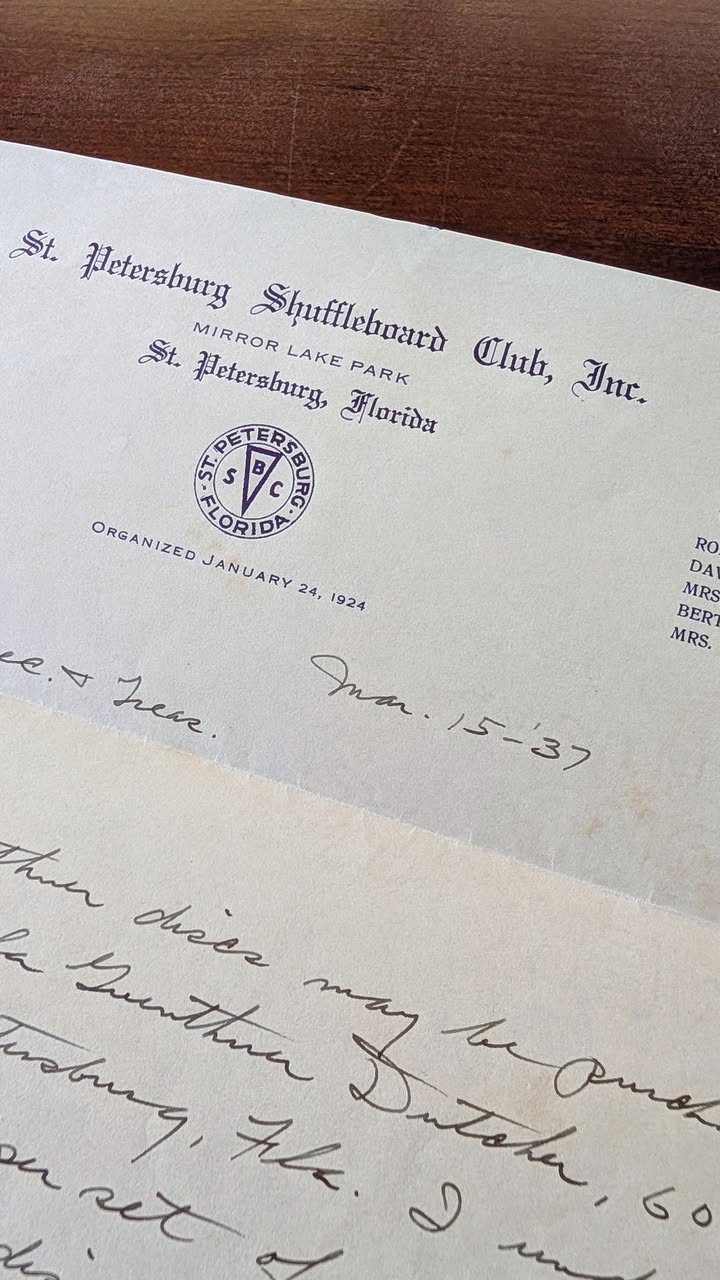 St. Petersburg Shuffleboard Club, Inc.
MIRROR LAKE PARK
St. Petersburg, Florida
ST. PETERSBURG
S B C
FLORIDA
ORGANIZED JANUARY 24, 1924
RO
DAV
MRS
BERT
MRS.
ec. & Treas.
Mar. 15-'37
thner discs may be purch
la Gunthner Dutcher, 60
tersburg, Fla. I und
per set of
dis